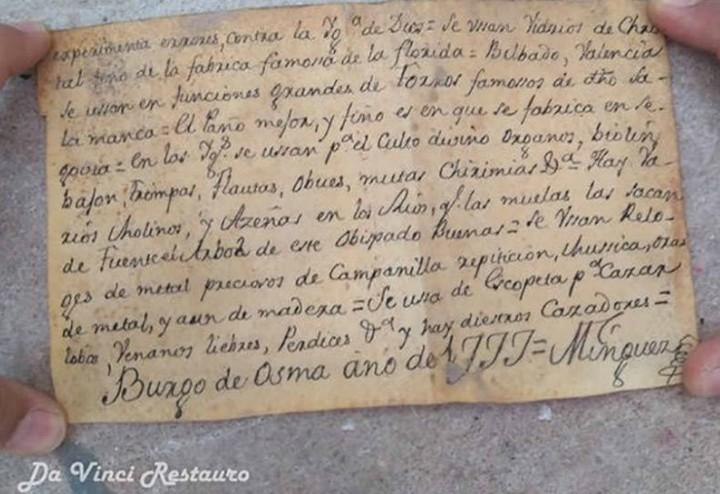 experimenta errores, contra la Ygª de Dios = Se Vssan Vidrios de Chris
tal fino de la fabrica famossa de la florida = Bilbado, Valencia
se ussan en funciones grandes de torros famossos de dho Sa-
lamanca = El Paño mejor, y fino es en que se fabrica en Se-
govia = en las Ygs. se ussan pª el Culto divino Organos, biolin
bajon, Trompas, Flautas, Obues, mutas Chirimias &ª = Hay Va-
rios Molinos, y Azeñas en los Rios, q. las muelas las sacan
de Fuente el Arbol de este Obispado Buenas = Se Vssan Relo-
ges de metal preciosos de Campanilla repiticion, Mussica, oxas
de metal, y aun de madera = Se ussa de Escopeta pª Cazar
lobos, Venanos liebres, Perdices &ª y hay diestros Cazadores =
Burgo de Osma año de 1777 = Minguez
Da Vinci Restauro